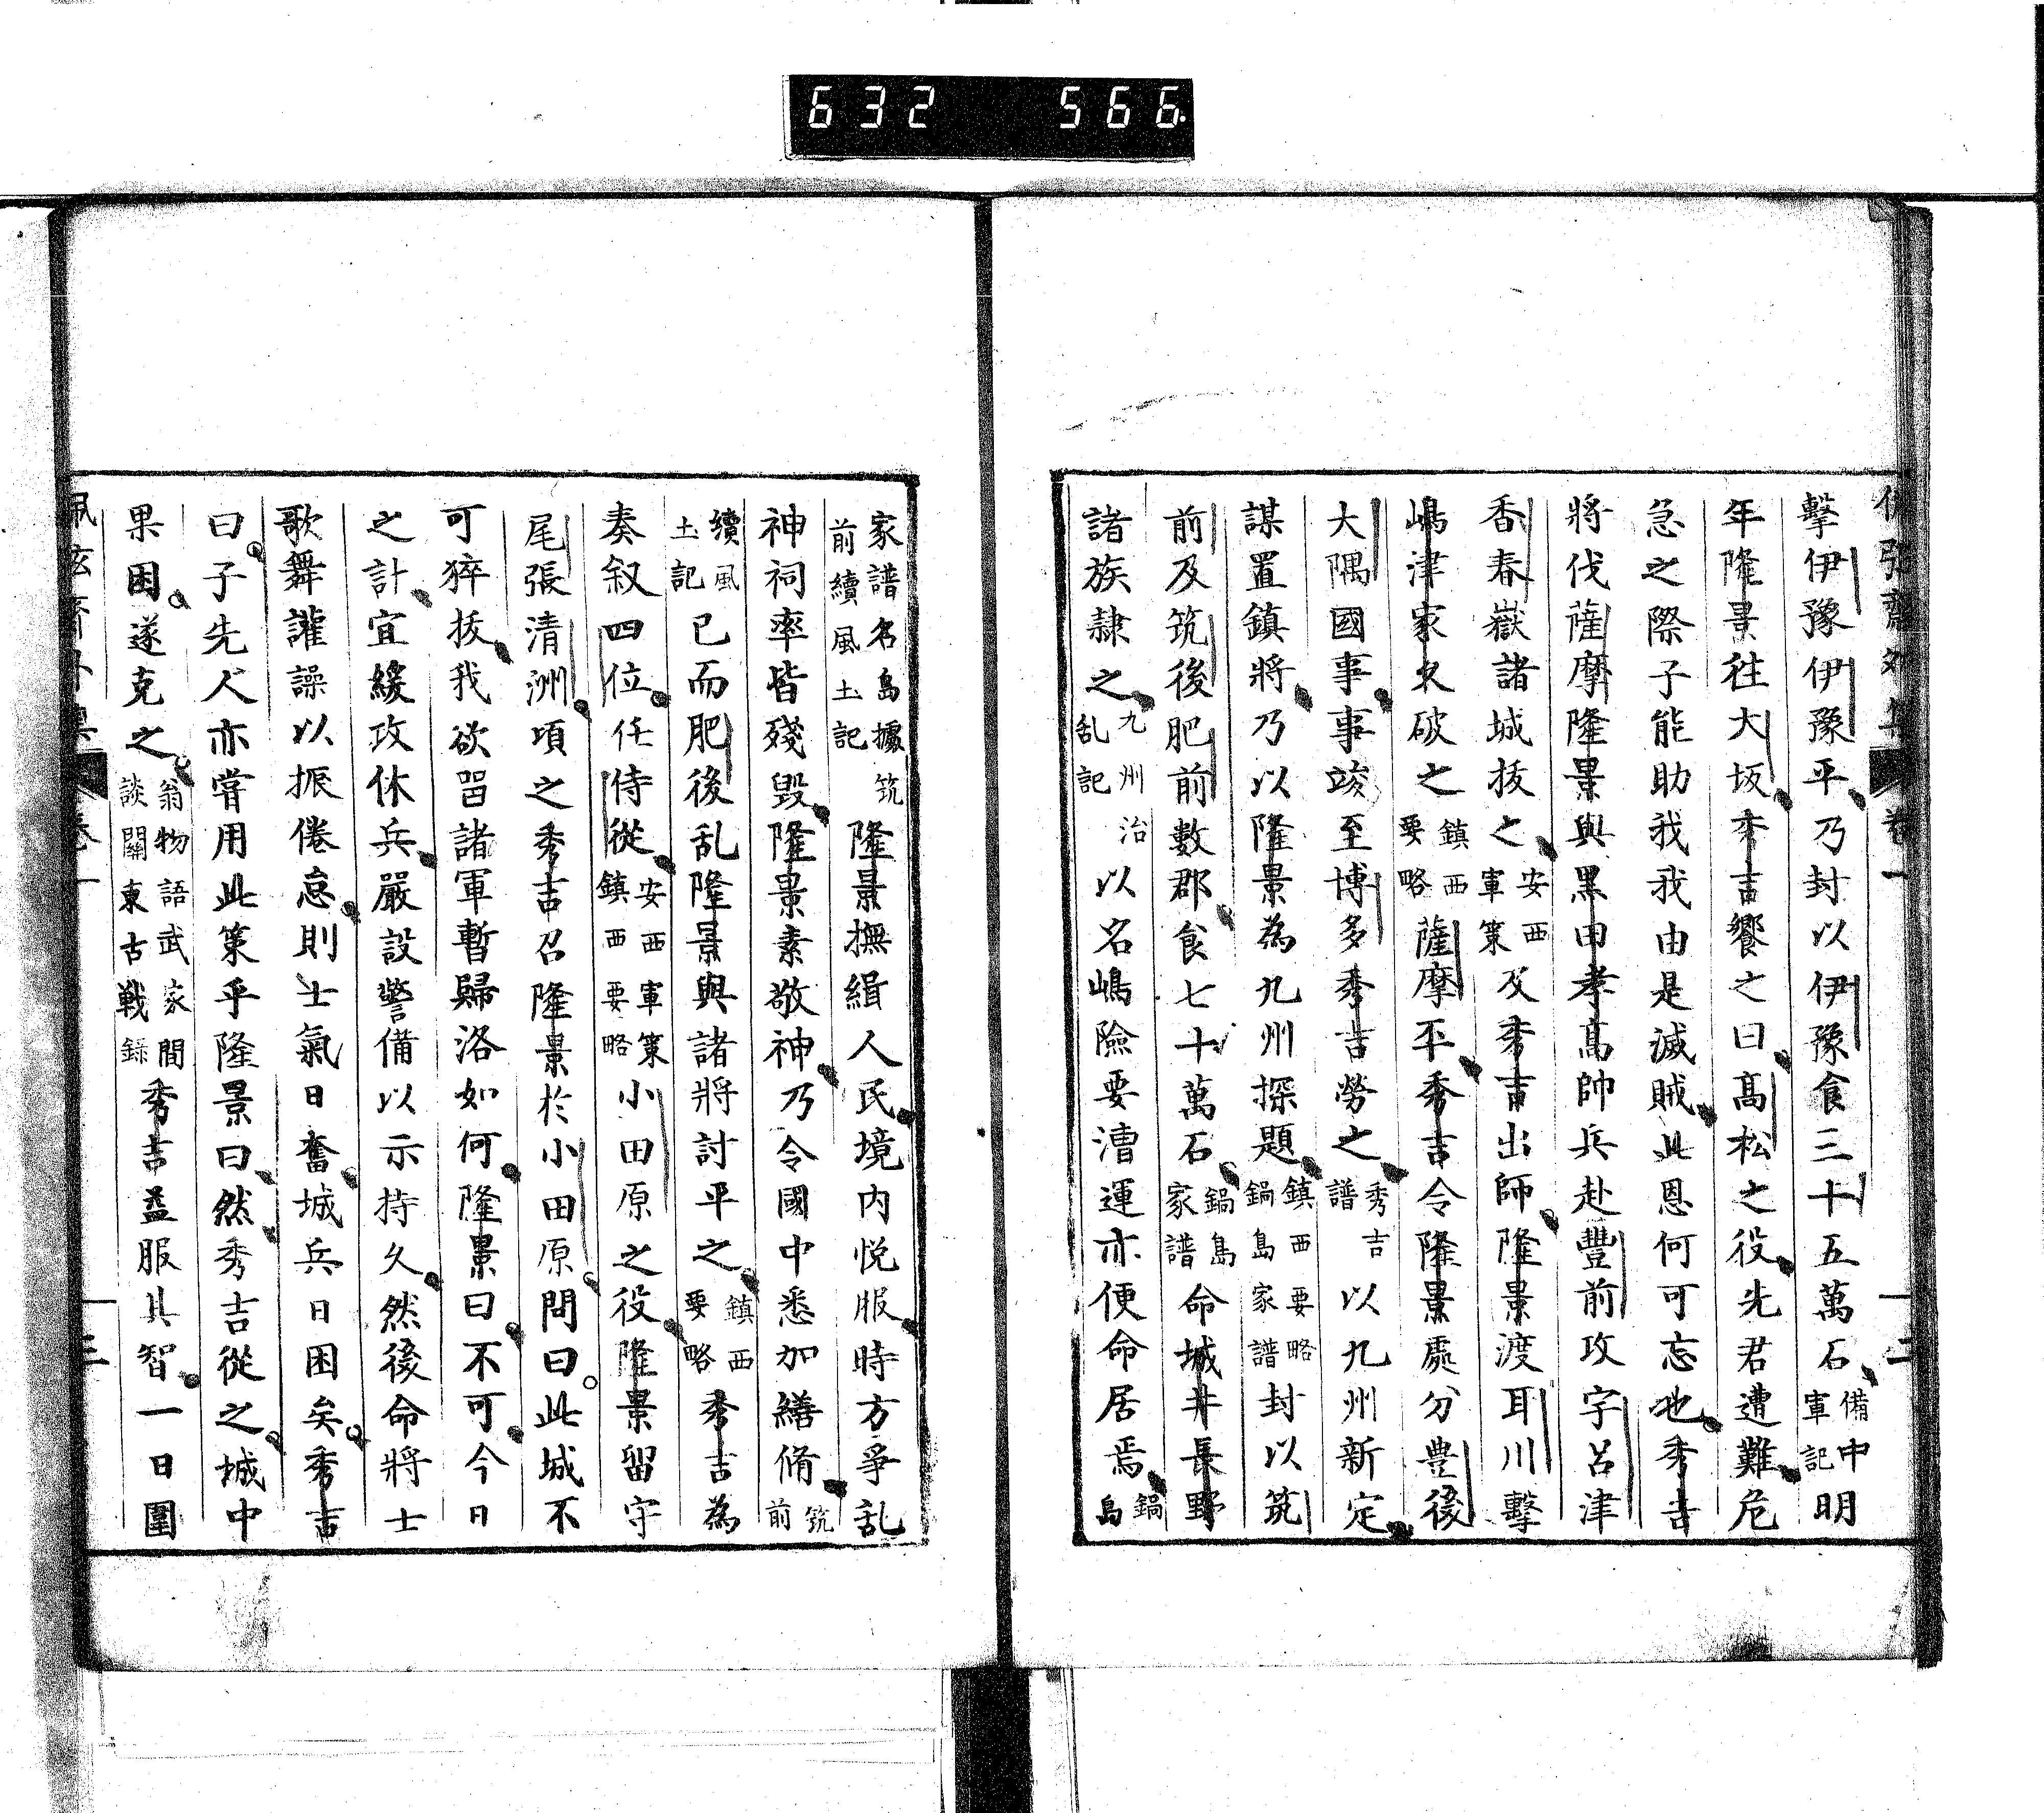 632 566
擊伊豫伊豫平乃封以伊豫食三十五萬石備中軍記明
年隆景往大坂秀吉饗之曰高松之役先君遭難危
急之際子能助我我由是滅賊此恩何可忘也秀吉
將伐薩摩隆景與黑田孝高帥兵赴豐前攻宇呂津
香春嶽諸城拔之安西軍策及秀吉出師隆景渡耳川擊
嶋津家久破之鎮西要略薩摩平秀吉令隆景處分豊後
大隅國事事竣至博多秀吉勞之秀吉譜以九州新定
謀置鎮將乃以隆景為九州探題鎮西要略鍋島家譜封以筑
前及筑後肥前數郡食七十萬石鍋島家譜命城井長野
諸族隷之九州治乱記以名嶋險要漕運亦便命居焉鍋島
家譜名島據筑前續風土記隆景撫緝人民境内悦服時方爭乱
神祠率皆殘毀隆景素敬神乃令國中悉加繕脩筑前
續風土記已而肥後乱隆景與諸將討平之鎮西要略秀吉為
奏叙四位任侍從安西軍策鎮西要略小田原之役隆景留守
尾張清洲頃之秀吉召隆景於小田原問曰此城不
可猝抜我欲留諸軍暫歸洛如何隆景曰不可今日
之計宜緩攻休兵嚴設警備以示持久然後命將士
歌舞讙譟以振倦怠則士氣日奮城兵日困矣秀吉
曰子先人亦嘗用此策乎隆景曰然秀吉從之城中
果困遂克之翁物語武家閒談關東古戰錄秀吉益服其智一日圍